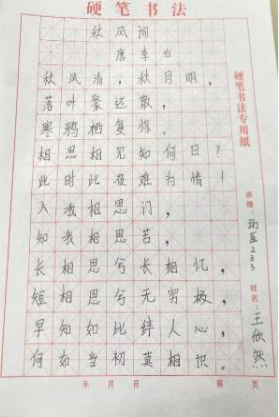 硬笔书法
秋风词
唐 李白
秋风清，秋月明，
落叶聚还散，
寒鸦栖复惊。
相思相见知何日？
此时此夜难为情！
入我相思门，
知我相思苦，
长相思兮长相忆，
短相思兮无穷极，
早知如此绊人心，
何如当初莫相识。
硬笔书法专用纸
班级
233
姓名：王欣然
年 月 日 第 页